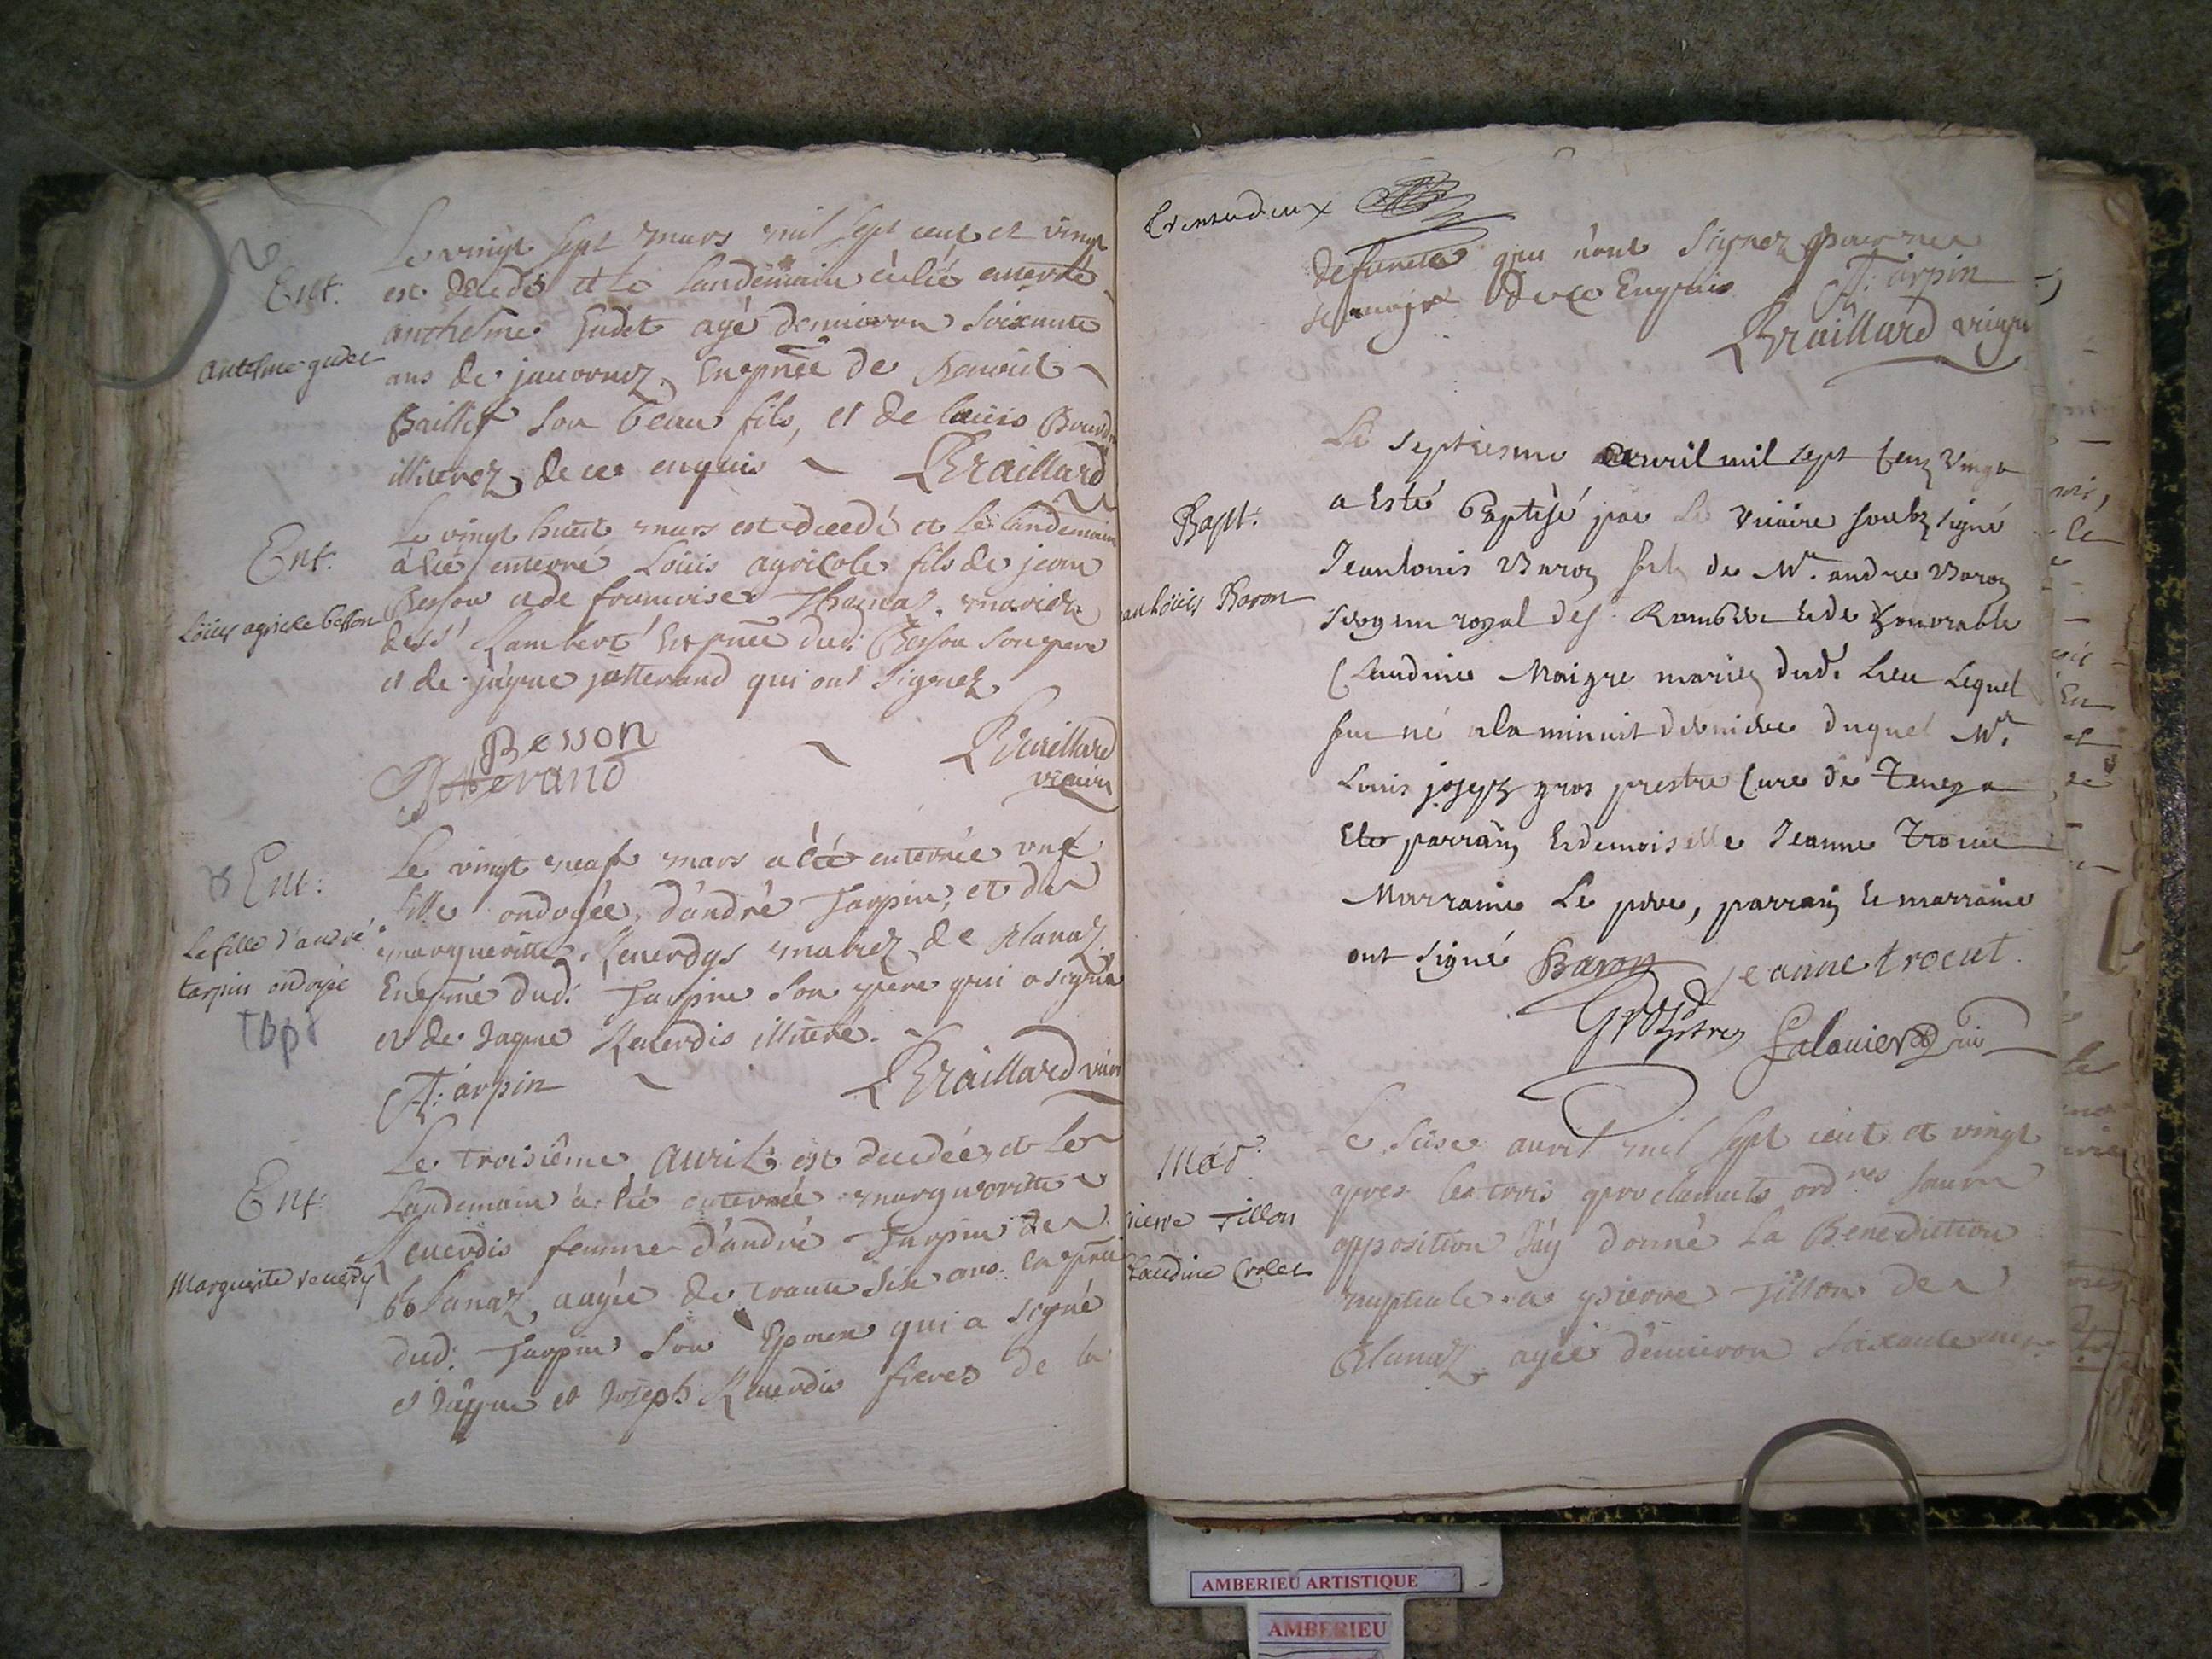 Ent.
Antelme gudet
Le vingt sept mars mil sept cent et vingt
est decedé et le landemain a été enterré
anthelme Gudet agé denuiron soixante
ans de jauvornoz. En pnce de Benoît
Baillif son beau fils, et de loüis
illiterez de ce enquis Braillard
Ent.
Loüis agricole besson
Le vingt huit mars est decedé et le landemain
a été enterré Loüis agricole fils de jean
Besson et de francoise Thomas mariez
de St Rambert En pnce dud. Besson son pere
et de jâque jotterand qui ont signez
Besson
Jotterand Braillard
vicaire
Ent.
La fille d'andré
tarpin ondoyée
Le vingt neuf mars a été enterrée une
fille ondoyée, d'andré Tarpin, et de
margueritte Reuerdys mariez de Blanaz
En pnce dud. Tarpin son pere qui a signé
et de Jaque Reuerdis illiteré.
A: tarpin Braillard vicaire
Ent.
Marguerite reuerdy
Le troisiême Auril est decedée et le
Landemain a été enterrée margueritte
Reuerdis femme d'andré Tarpin de
Blanaz, aagée de trante six ans. En pnce
dud. Tarpin son Epoux qui a signé
et Jâque et Joseph Reuerdis freres de la
Trentedeux
defuncte qui n'ont signez pour ne
scauoir de ce Enquis A: tarpin
Braillard vicaire
Bapt.
Jean Loüis Baron
Le septiesme auril mil sept cent vingt
a esté Baptisé par le vicaire soubsigné
Jeanlouis Baron fils de Mr. andre Baron
royal de St Rambert et de honorable
Claudine Maigre mariez dud. Lieu Lequel
fut né a la minuit derniere duquel Mr.
Louis joseph gros prestre Cure de Tenay a
Ete parrain et demoiselle Jeanne Trocu
Marraine Le pere, parrain et marraine
ont signé Baron jeanne trocut.
Gros ptre
Mar.
pierre Tillon
Claudine Crolet
Le seise auril mil sept cent et vingt
apres les trois proclamats ordres sauns
opposition J'ay donné La Benediction
nuptiale a pierre Tillon de
Blanaz agé d'enuiron soixante
AMBERIEU ARTISTIQUE
AMBERIEU